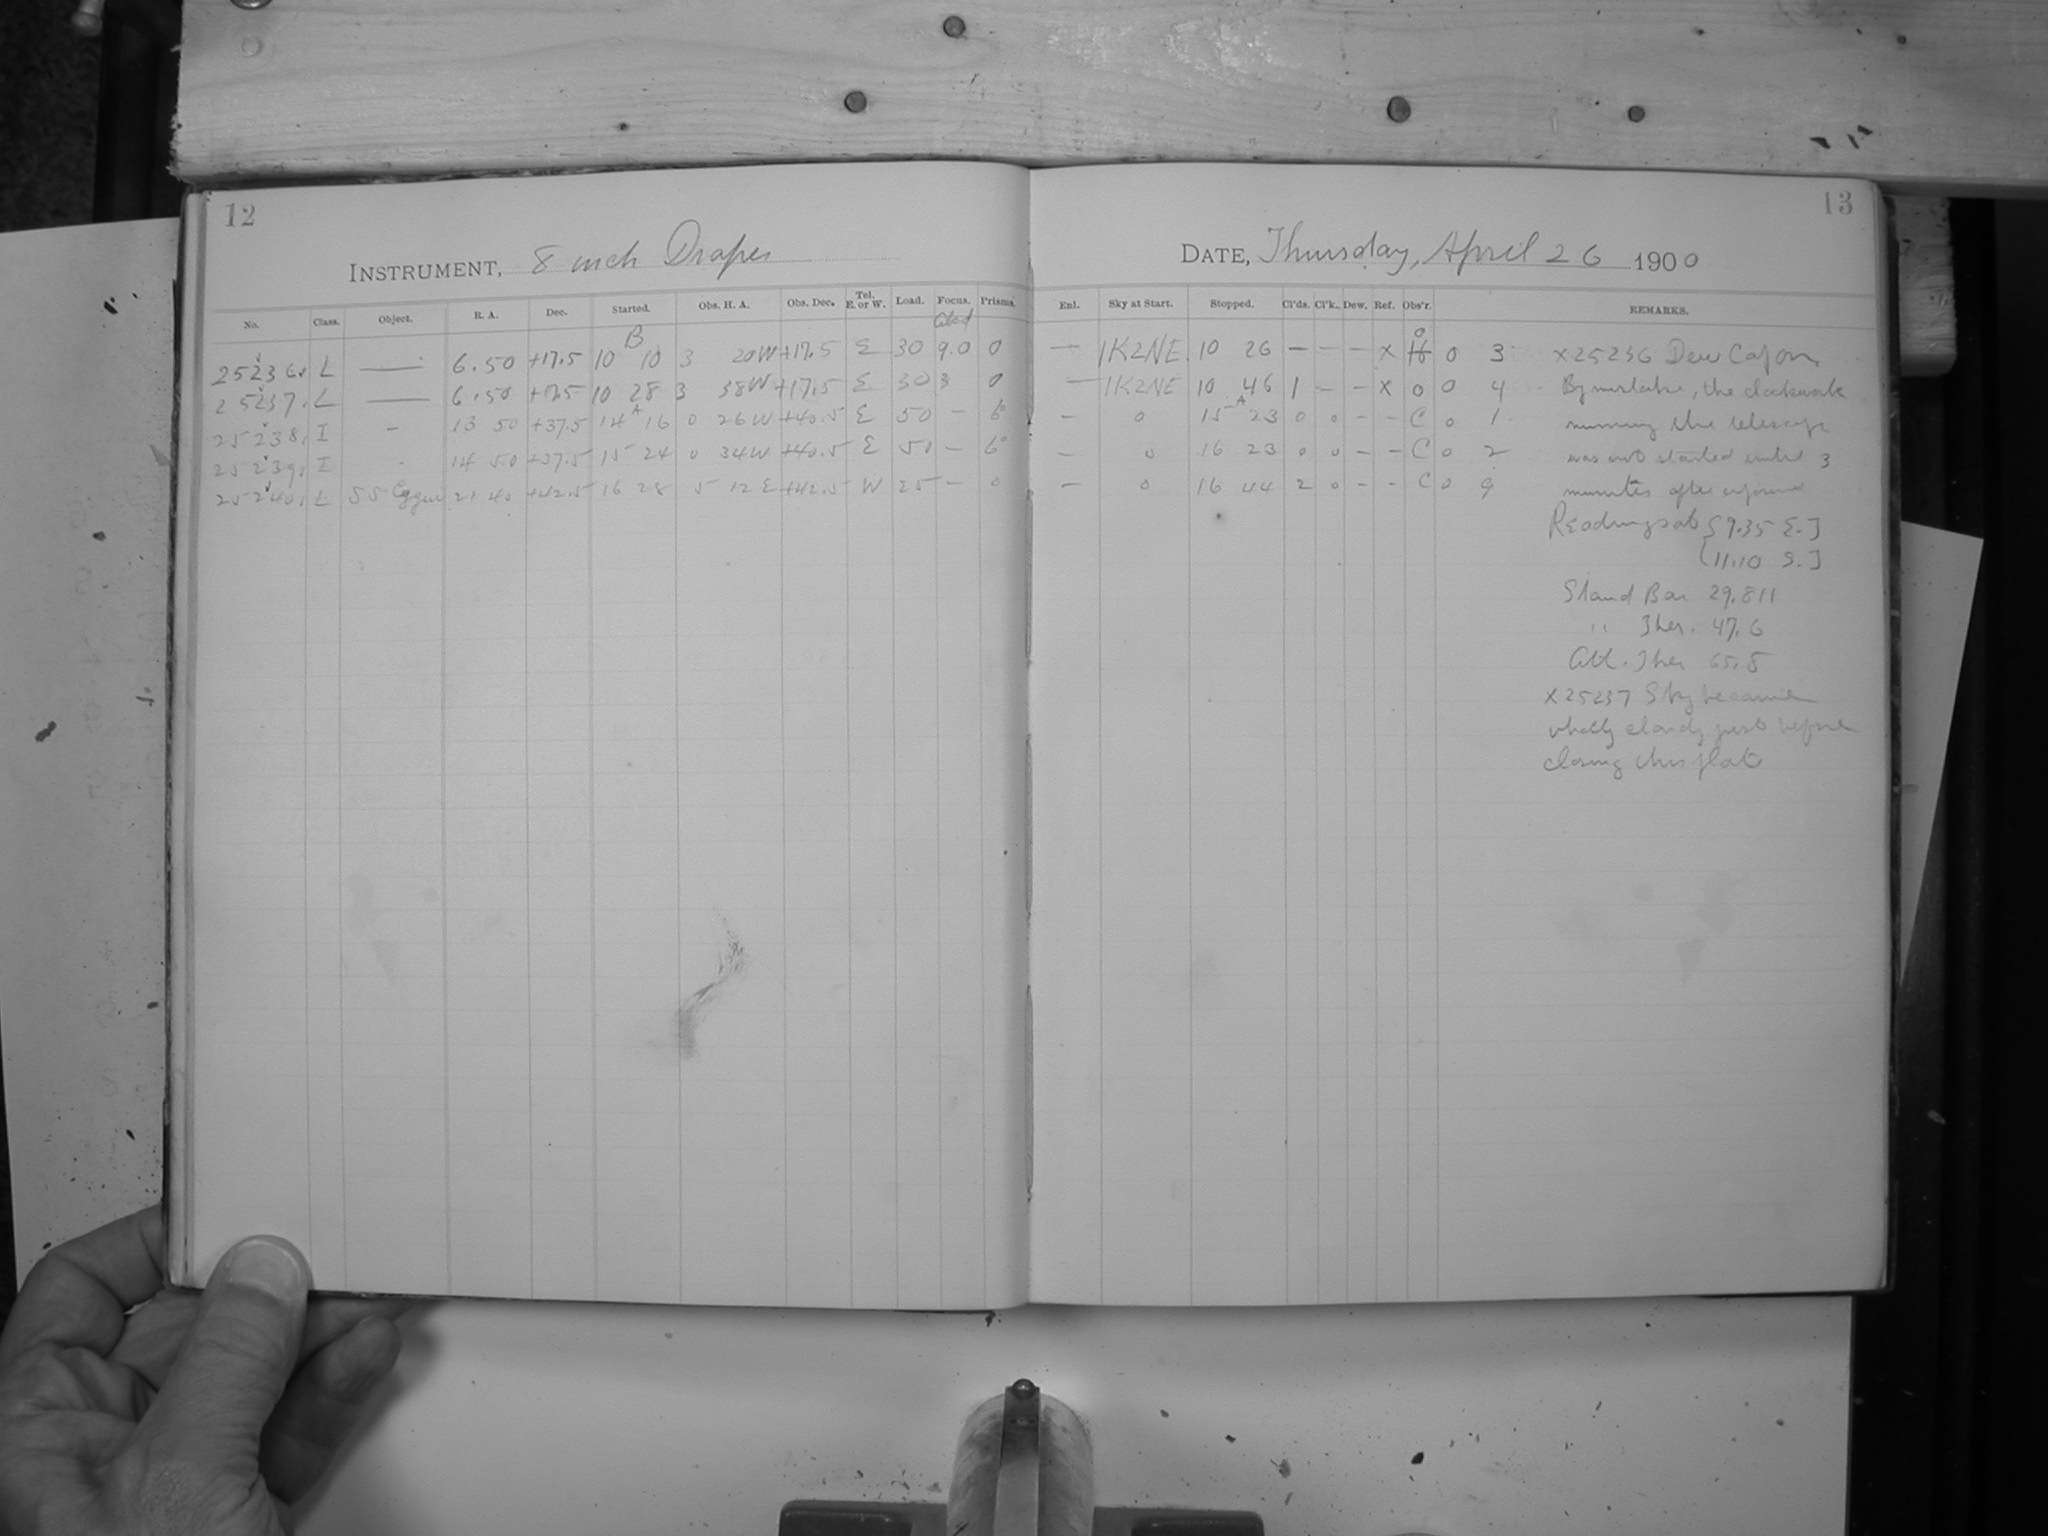 12
INSTRUMENT, 8 inch Draper
No. Class. Object. R. A. Dec. Started. Obs. H. A. Obs. Dec. Tel. E. or W. Load. Focus. Prisms.
B
25236. L — 6.50 +17.5 10 10 3 20W +17.5 E 30 9.0 0
25237. L — 6.50 +17.5 10 28 3 38W +17.5 E 30 3 0
25238. I - 13 50 +37.5 14 A 16 0 26W +40.5 E 50 -
25239. I - 14 50 +37.5 15 24 0 34W +40.5 E 50 -
25240. L SS Cygni 21 40 +42.5 16 28 5 12 E +42.5 W 25 - 0
13
DATE, Thursday, April 26 1900
Enl. Sky at Start. Stopped. Cl'ds. Cl'k. Dew. Ref. Obs'r. REMARKS.
O
— 1K2NE. 10 26 — — — x H 0 3 x25236 Dew Cap on
— 1K2NE 10 46 1 - - x O 0 4 By mistake, the clockwork
- 0 15 A 23 0 0 - - C 0 1 running the telescope
- 0 16 23 0 0 - - C 0 2 was not started until 3
- 0 16 44 2 0 - - C 0 9 minutes after
Readings at {9.35 E.]
{11.10 S.]
Stand Bar. 29.811
" Ther. 47.6
Att. Ther 65.8
x25237 Sky became
wholly cloudy just before
closing this plate